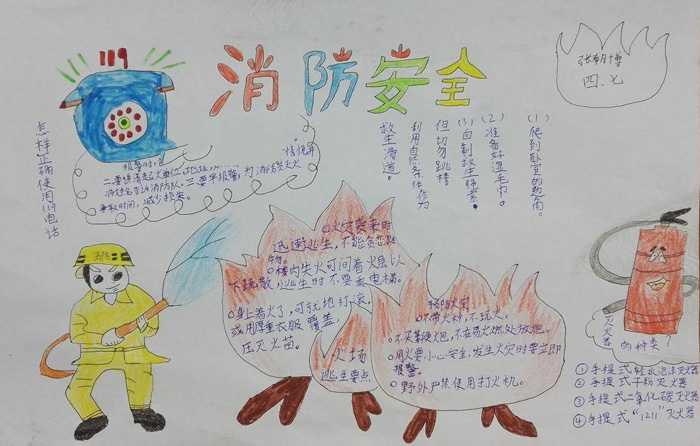 119
消防安全
四、七
怎样正确使用119电话
报警时,
二要讲清起火单位、地址、
消防队,三要早报警,为消防员灭火
争取时间,减少损失。
(1)爬到卧室的墙角。
(2)准备好湿毛巾。
(3)自制救生绳索,
但切勿跳楼
利用自然条件作为
救生滑道。
消防
火灾袭来时
迅速逃生,不能贪恋财
物。
楼内失火可向着火层以
下疏散,逃生时不要乘电梯。
身上着火了,可就地打滚,
或用厚重衣服覆盖,
压灭火苗。
火场
逃生要点
预防火灾
不带火种,不玩火。
不在易燃处放炮。
用火要小心安全,发生火灾时要立即
报警。
野外严禁使用打火机。
灭火器的种类?
①手提式轻水泡沫灭火器
②手提式干粉灭火器
③手提式二氧化碳灭火器
④手提式“1211”灭火器